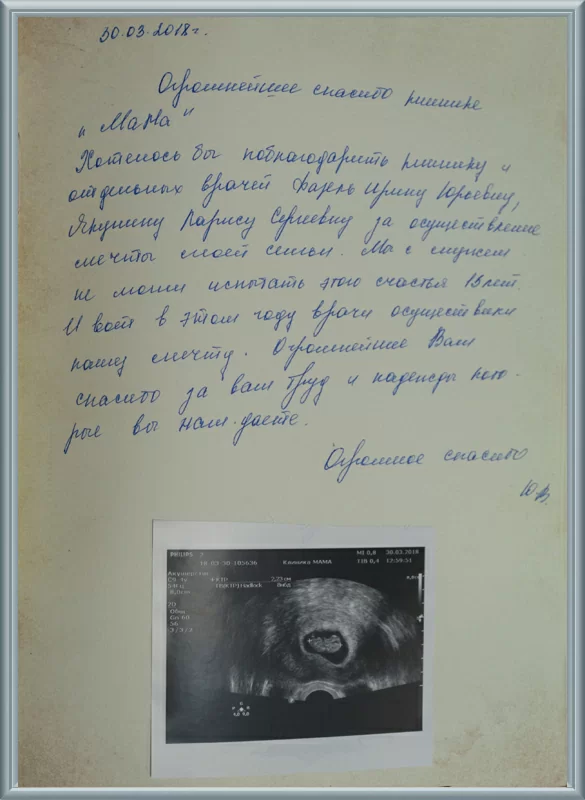 30.03.2018г.
Огромнейшее спасибо клинике
"Мама"
Хотелось бы поблагодарить клинику и
отдельных врачей Ирину Юрьевну,
Якунину Ларису Сергеевну за осуществление
мечты моей семьи. Мы с мужем
не могли испытать этого счастья 15 лет.
И вот в этом году врачи осуществили
нашу мечту. Огромнейшее Вам
спасибо за ваш труд и надежды кото-
рые вы нам даете.
Огромное спасибо
Ю.В.
PHILIPS
MI 0,8 30.03.2018
18 03 30 105636 Клиника МАМА TIB 0,4 12:59:51
Акушерство
2,23 см
Hadlock
2D
56
3/3/2